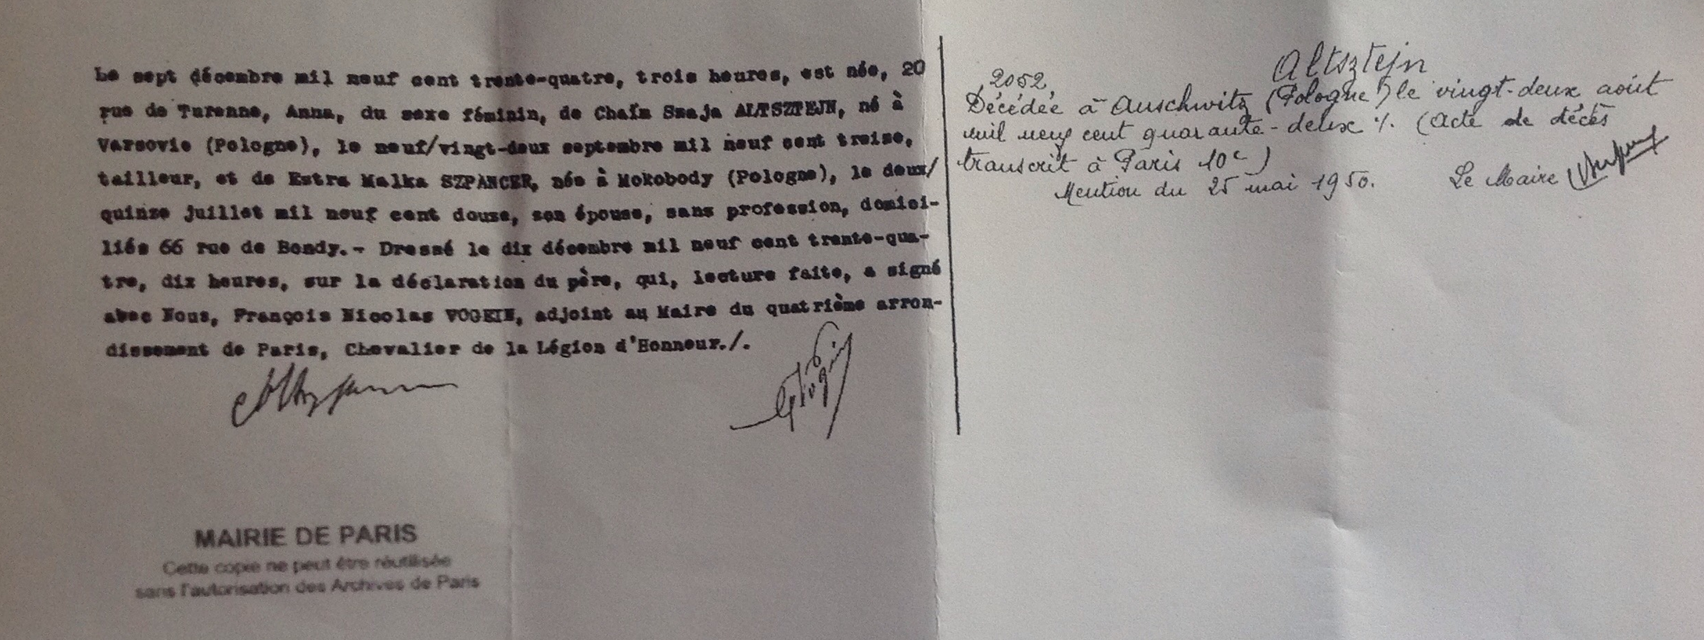 Le sept décembre mil neuf cent trente-quatre, trois heures, est née, 20
rue de Turenne, Anna, du sexe féminin, de Chaïm Szaja ALTSZTEJN, né à
Varsovie (Pologne), le neuf/vingt-deux septembre mil neuf cent treize,
tailleur, et de Estra Malka SZPANCER, née à Mokobody (Pologne), le deux/
quinze juillet mil neuf cent douze, son épouse, sans profession, domici-
liés 66 rue de Bondy.- Dressé le dix décembre mil neuf cent trente-qua-
tre, dix heures, sur la déclaration du père, qui, lecture faite, a signé
avec Nous, François Nicolas VOGEIN, adjoint au Maire du quatrième arron-
dissement de Paris, Chevalier de la Légion d'Honneur./.
MAIRIE DE PARIS
Cette copie ne peut être réutilisée
sans l'autorisation des Archives de Paris
Altsztejn
2052
Décédée à Auschwitz (Pologne) le vingt-deux août
mil neuf cent quarante-deux ./. (acte de décès
transcrit à Paris 10e)
Mention du 25 mai 1950. Le Maire